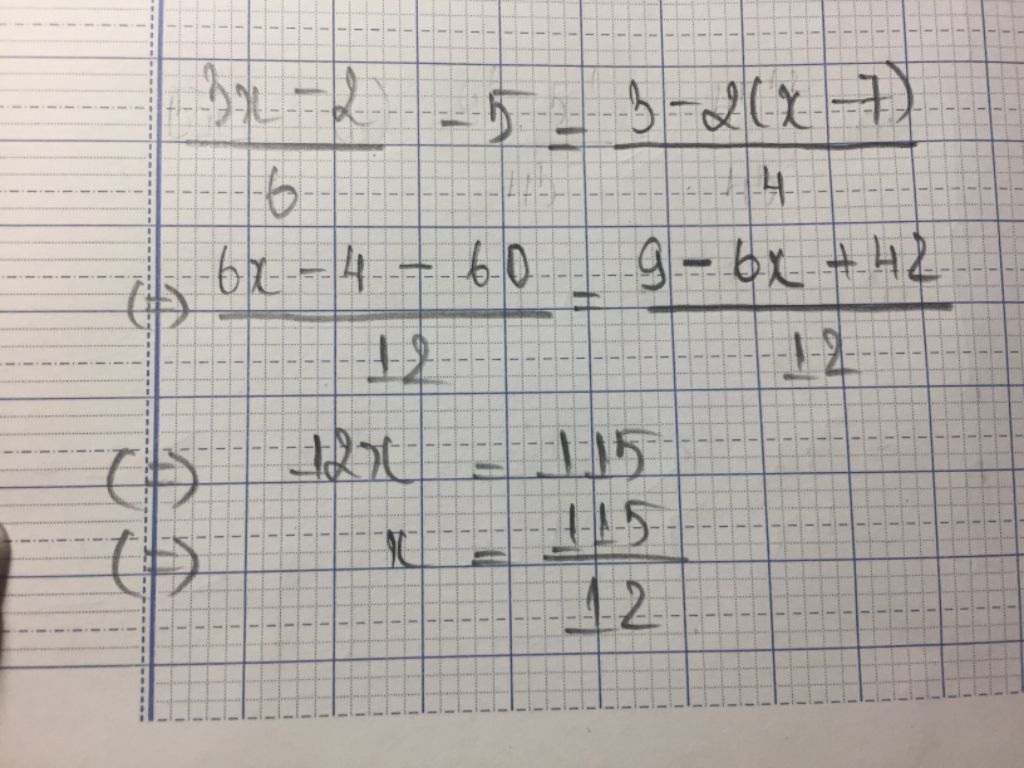 (3x - 2)/6 - 5 = (3 - 2(x - 7))/4
(=) (6x - 4 - 60)/12 = (9 - 6x + 42)/12
(=) 12x = 115
(=) x = 115/12